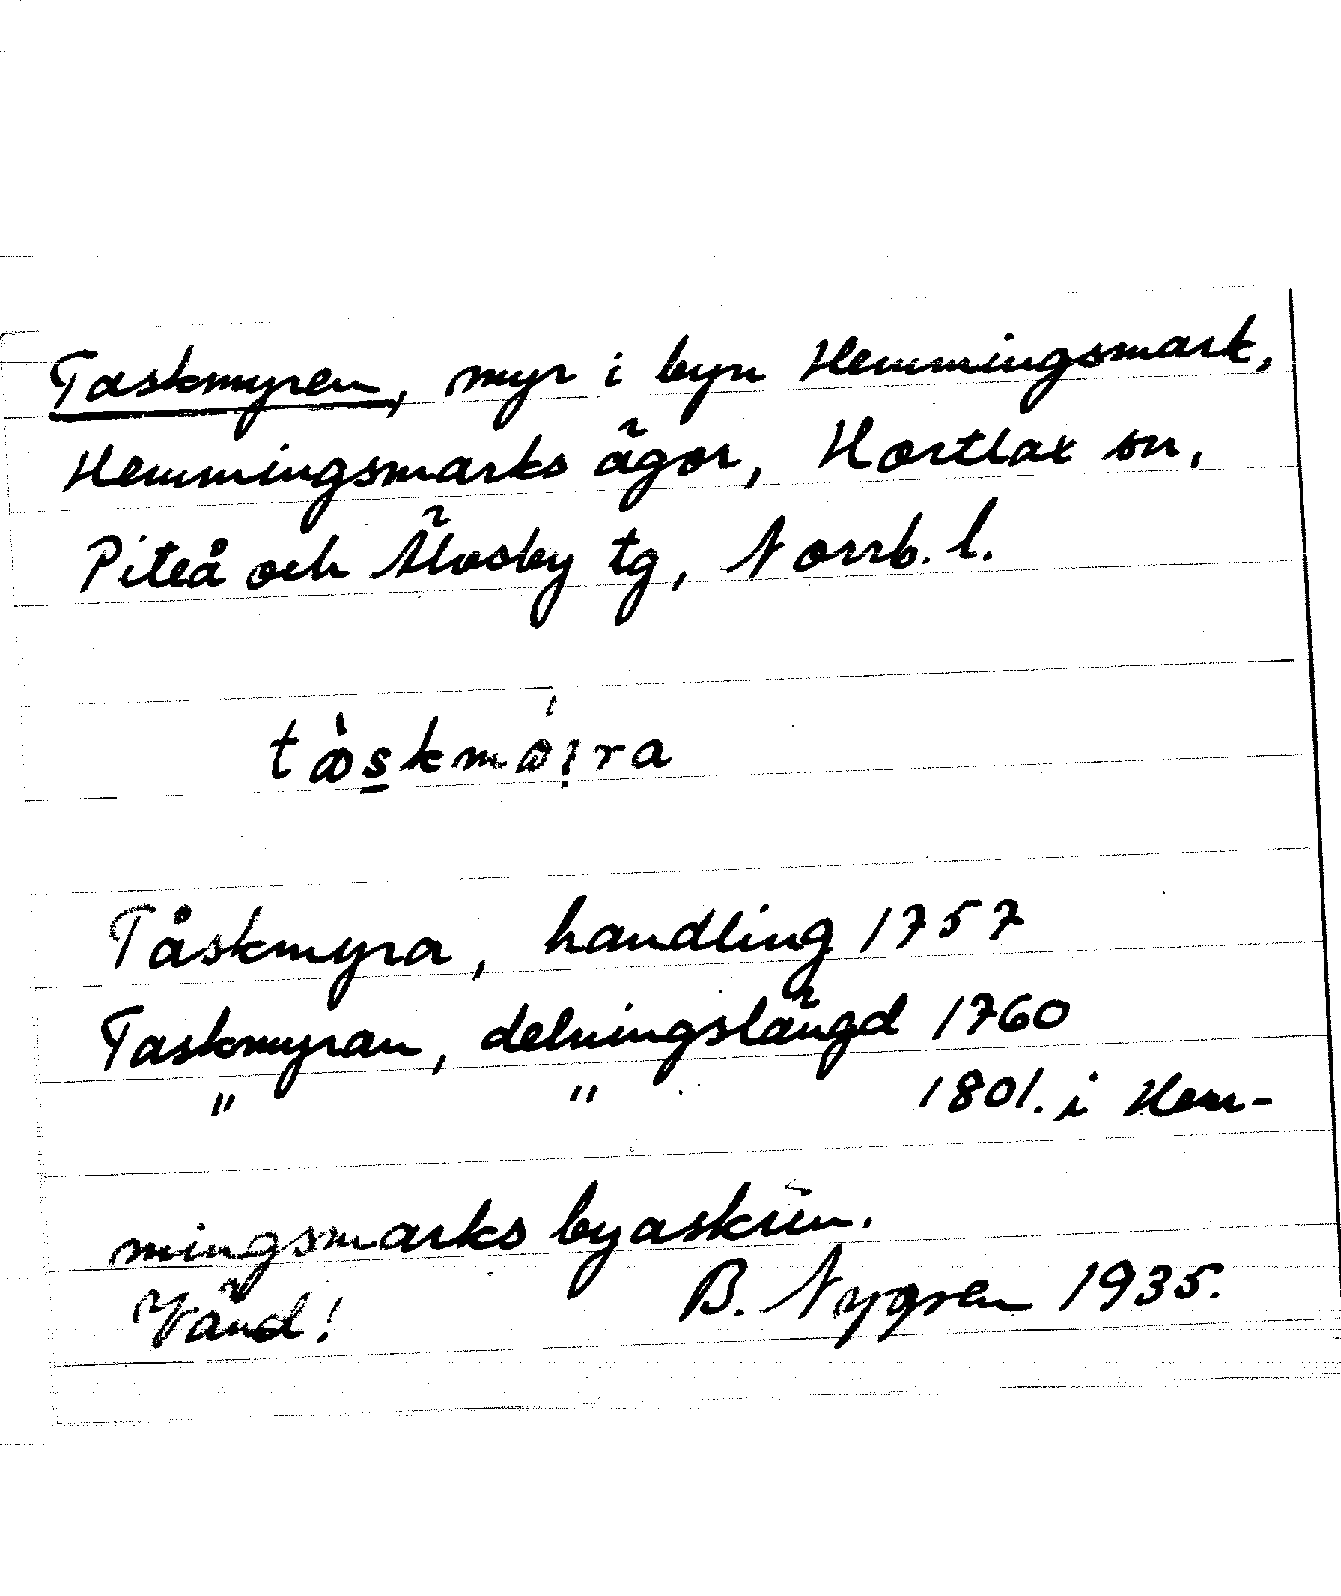 Taskmyren, myr i byn Hemmingsmark,
Hemmingsmarks ägor, Hortlax sn,
Piteå och Älvsby tg, Norrb. l.
Tåskmyra, handling 1757
Taskmyran, delningslängd 1760
" " 1801. i Hem-
mingsmarks byaskrin.
Vänd! B. Nygren 1935.